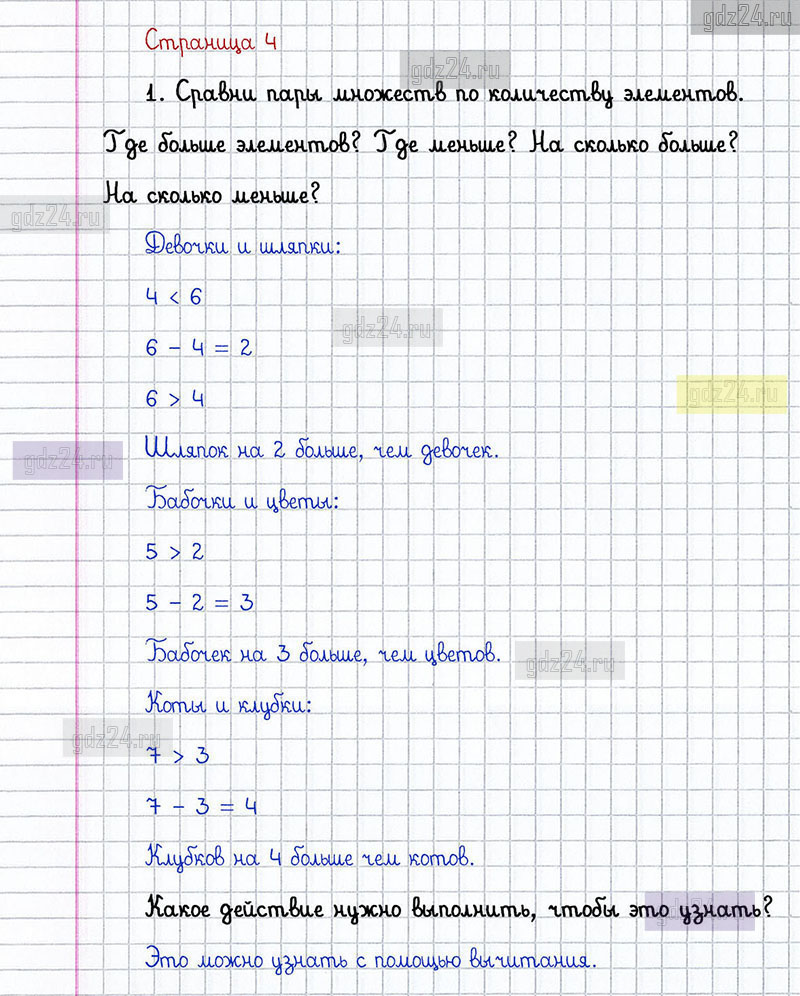 gdz24.ru
Страница 4
gdz24.ru
1. Сравни пары множеств по количеству элементов.
Где больше элементов? Где меньше? На сколько больше?
На сколько меньше?
gdz24.ru
Девочки и шляпки:
4 < 6
gdz24.ru
6 - 4 = 2
6 > 4
gdz24.ru
Шляпок на 2 больше, чем девочек.
gdz24.ru
Бабочки и цветы:
5 > 2
5 - 2 = 3
Бабочек на 3 больше, чем цветов.
gdz24.ru
Коты и клубки:
gdz24.ru
7 > 3
7 - 3 = 4
Клубков на 4 больше чем котов.
Какое действие нужно выполнить, чтобы это узнать?
gdz24.ru
Это можно узнать с помощью вычитания.